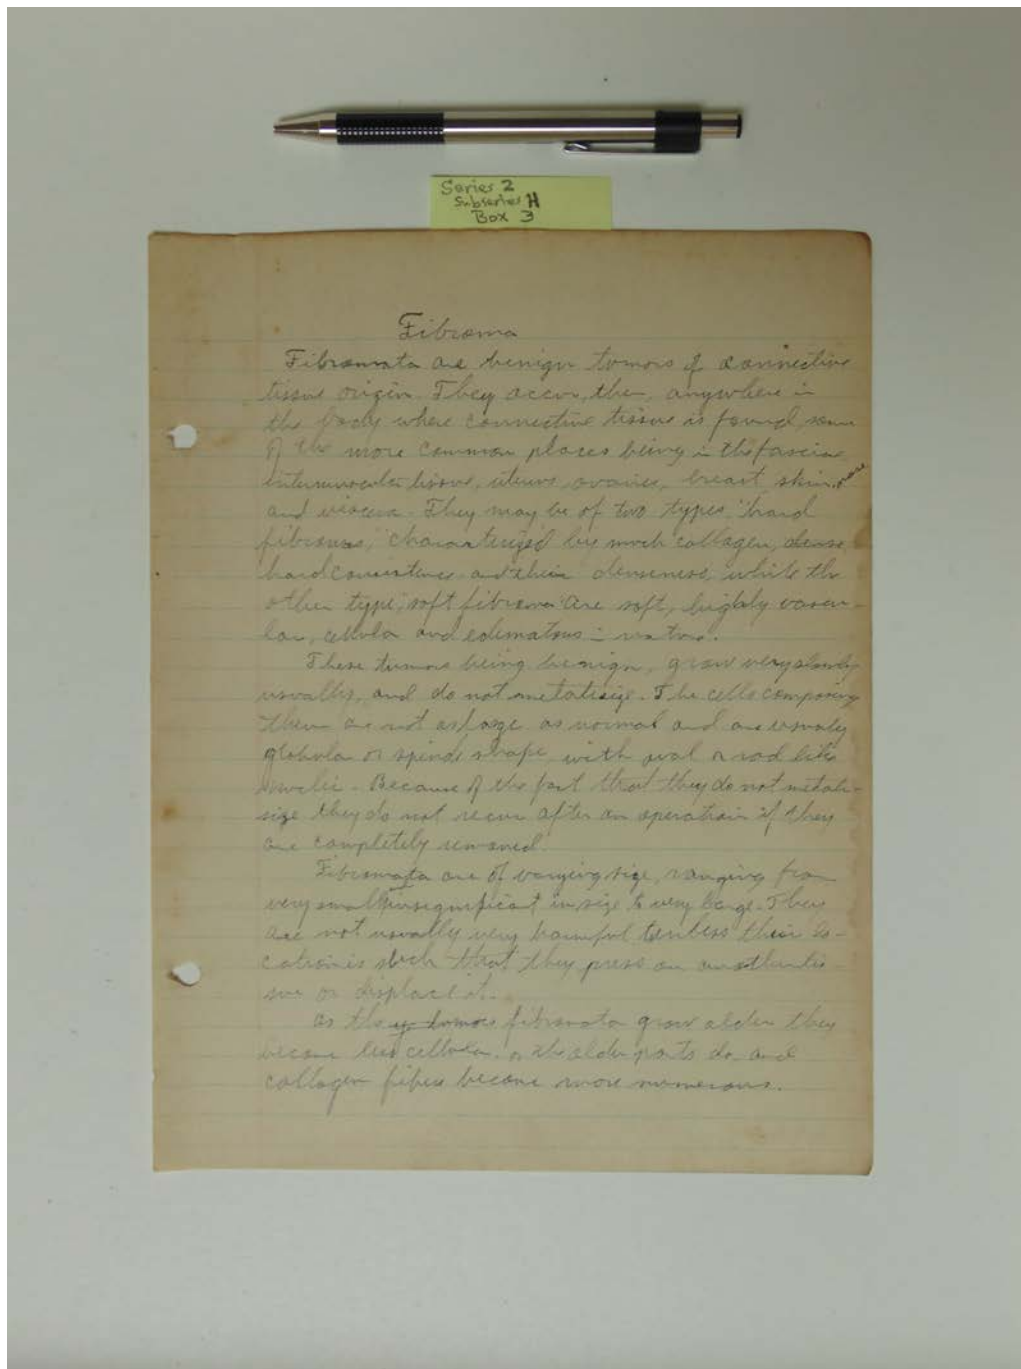 Series 2
Subseries H
Box 3
Fibroma
Fibromata are benign tumors of connective
tissue origin. They occur, then, anywhere in
the body where connective tissue is found, some
of the more common places being in the fasciae
intermuscular tissue, uterus, ovaries, breast skin, nose
and viscera. They may be of two types, "hard
fibromas," characterized by much collagen, dense
hard consistence and their denseness, while the
other type, "soft fibroma" are soft, highly vascu-
lar, cellular and edematous in nature.
These tumors being benign, grow very slowly
usually, and do not metatisize. The cells composing
them are not as large as normal and are usually
globular or spindl shape with oval or rod like
nuclei. Because of the fact that they do not metati-
size they do not recur after an operation if they
are completely removed.
Fibromata are of varying size, ranging from
very small insignificant in size to very large. They
are not usually very harmful unless their lo-
cation is such that they press on another tis-
sue or displace it.
As they tumors fibromata grow older they
become less cellular or the older parts do and
collagen fibers become more numerous.